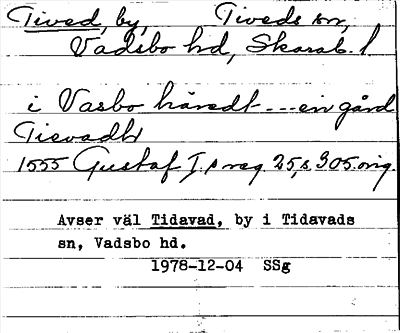 Tived, by, Tiveds sn,
Vadsbo hd, Skarab. l
i Vasbo häredt --- ein gård
Tievadh
1555 Gustaf I:s reg. 25, s. 305. orig.
Avser väl Tidavad, by i Tidavads
sn, Vadsbo hd.
1978-12-04 SSg